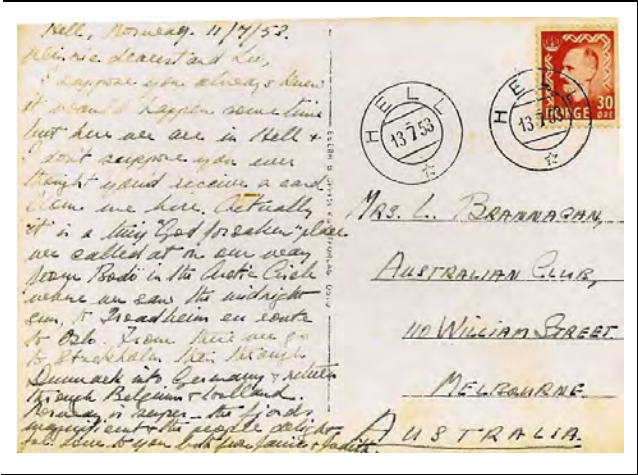 Hell, Norway. 11/7/53.
dearest and Lee,
I suppose you always knew
it would happen some time
but here we are in Hell +
I don't suppose you ever
thought you'd receive a card
from me here. Actually
it is a tiny "God forsaken" place
we called at on our way
from Bodö in the Arctic Circle
where we saw the midnight
sun, to Trondheim en route
to Oslo. From there we go
to Stockholm then through
Denmark into Germany + return
through Belgium + Holland.
Norway is super - the fjords
magnificent + the people delight-
ful. Love to you both from Janice + Judith.
HELL
13 7 53
HELL
13 7 53
NORGE
30
ØRE
MRS. L. BRANNAGAN,
AUSTRALIAN CLUB,
110 WILLIAM STREET
MELBOURNE
AUSTRALIA.